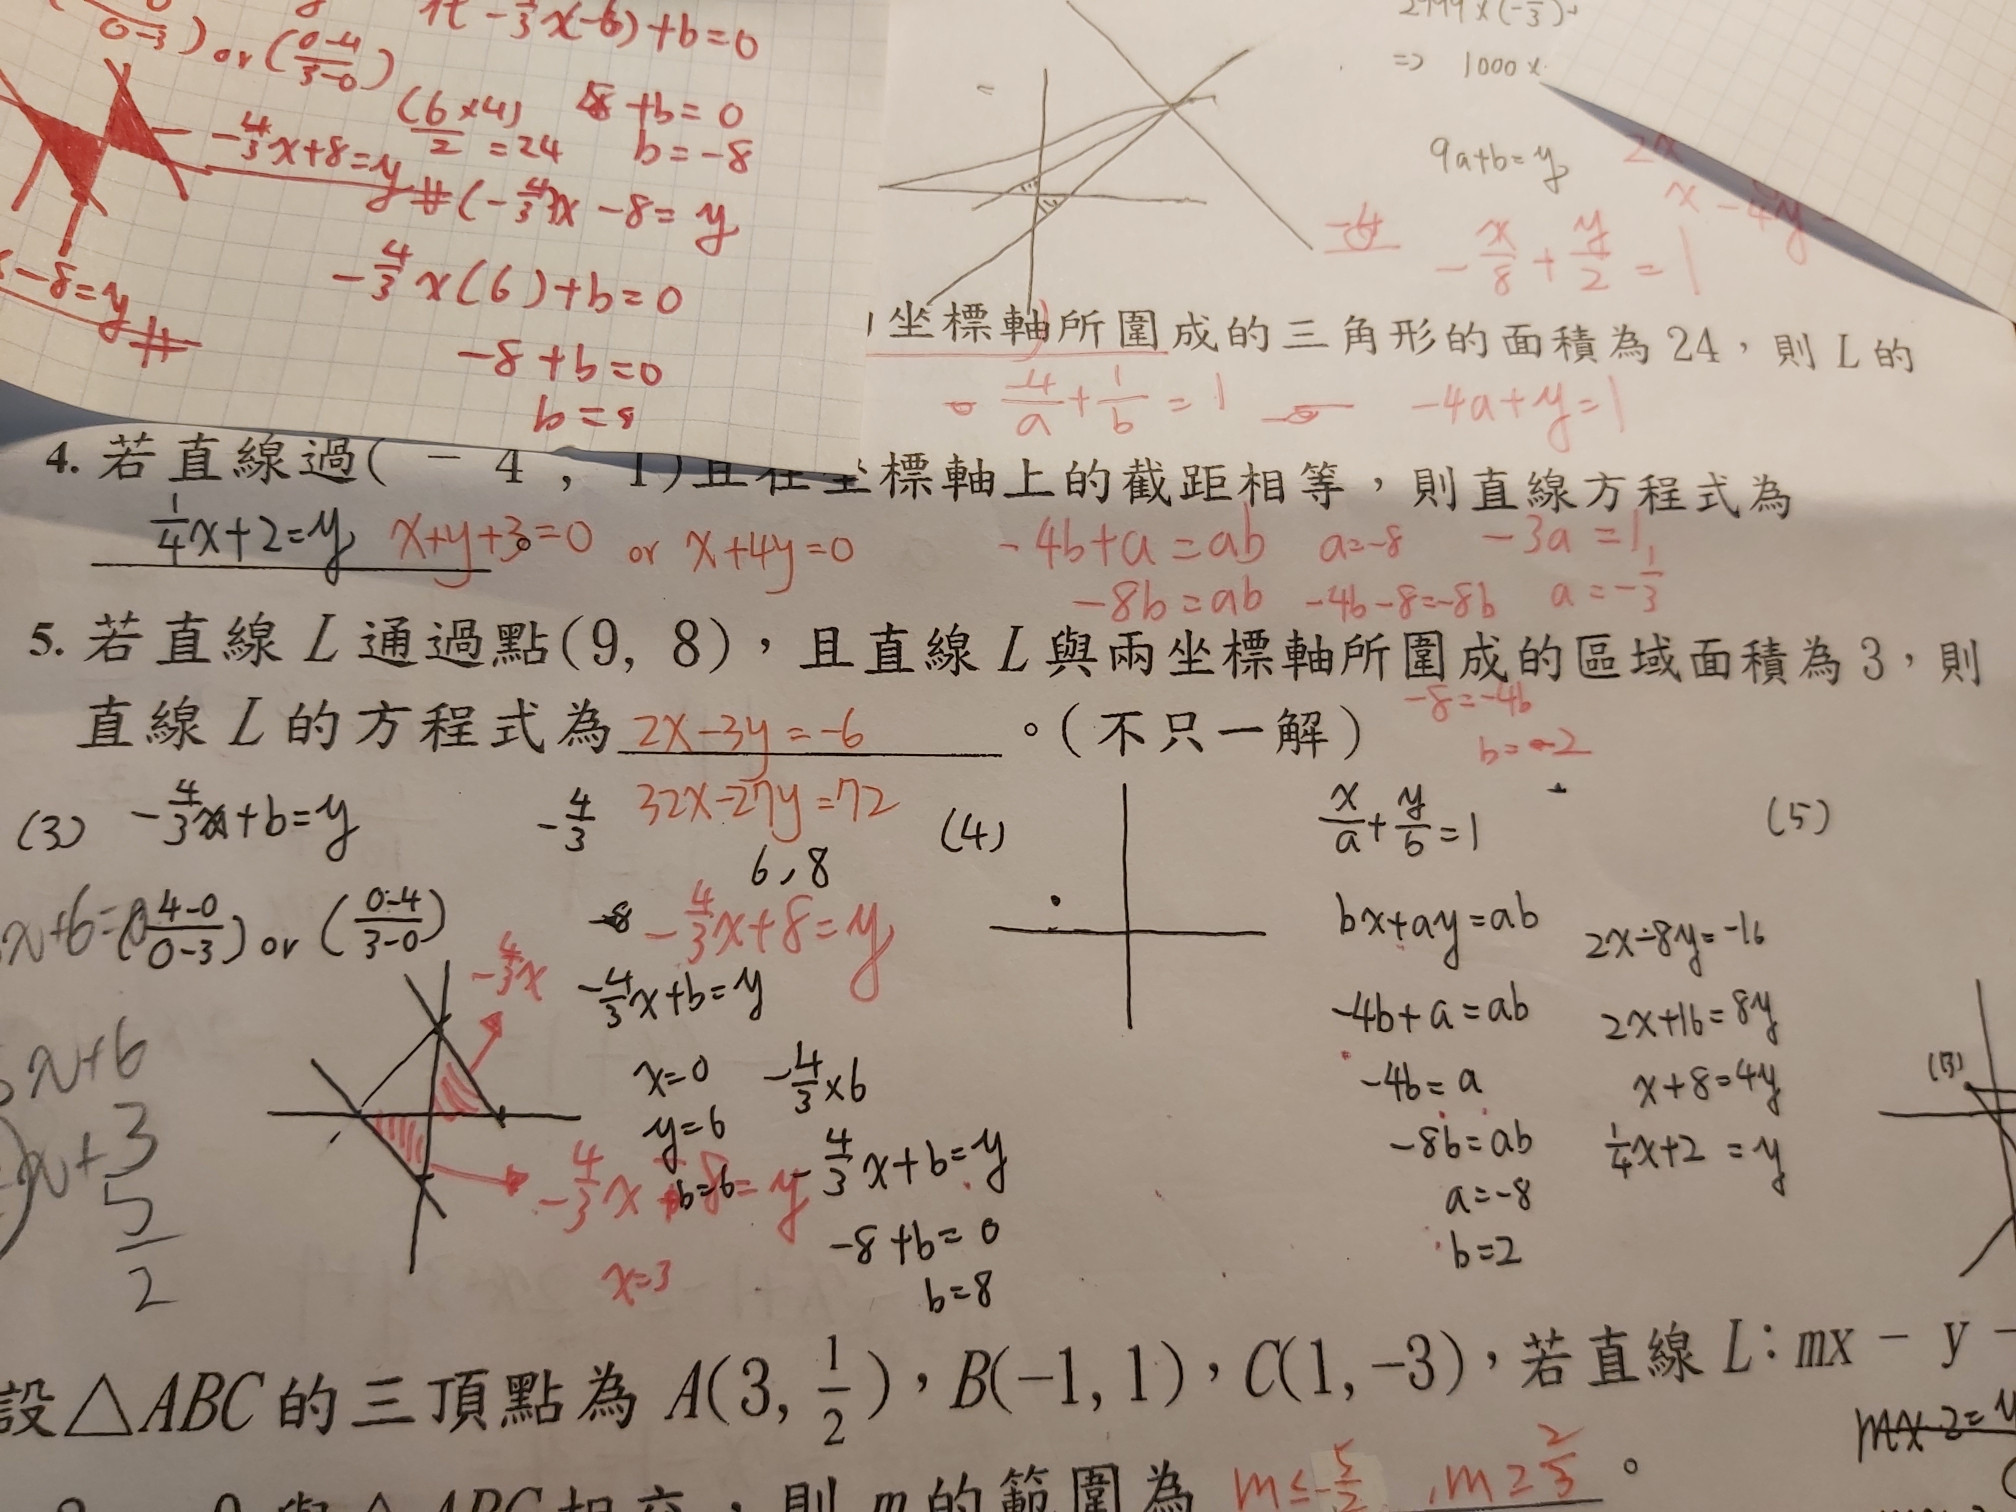 or (0-4/3-0)
-4/3x(-6)+b=0
(6×4)/2=24
8+b=0
b=-8
-4/3x+8=y
(-4/3)x-8=y
-4/3x(6)+b=0
-8=y
-8+b=0
=> 1000x
9a+b=y
-x/8+y/2=1
坐標軸所圍成的三角形的面積為24,則L的
4/a+1/b=1
-4a+y=1
4. 若直線過(-4, 1)且在坐標軸上的截距相等,則直線方程式為
1/4x+2=y x+y+3=0 or x+4y=0
-4b+a=ab a=-8 -3a=1
-8b=ab -4b-8=-8b a=-1/3
5. 若直線L通過點(9, 8),且直線L與兩坐標軸所圍成的區域面積為3,則
直線L的方程式為 2x-3y=-6 。(不只一解)
-8=-4b
b=-2
32x-27y=72
(3) -4/3x+b=y
-4/3
6,8
x+6=0
(4-0/0-3) or (0-4/3-0)
-8
-4/3x+8=y
-4/3x
-4/3x+b=y
x=0 -4/3×6
y=6
b=6
-4/3x+b=y
-8+b=0
b=8
x=3
x+6
x+3
5/2
(4)
x/a+y/b=1
bx+ay=ab
-4b+a=ab
-4b=a
-8b=ab
a=-8
b=2
2x-8y=-16
2x+16=8y
x+8=4y
1/4x+2=y
(5)
(B)
設△ABC的三頂點為A(3, 1/2),B(-1, 1),C(1, -3),若直線L:mx-y-
mx-2=y
相交,則m的範圍為 m≤-5/2, m≥2/3。